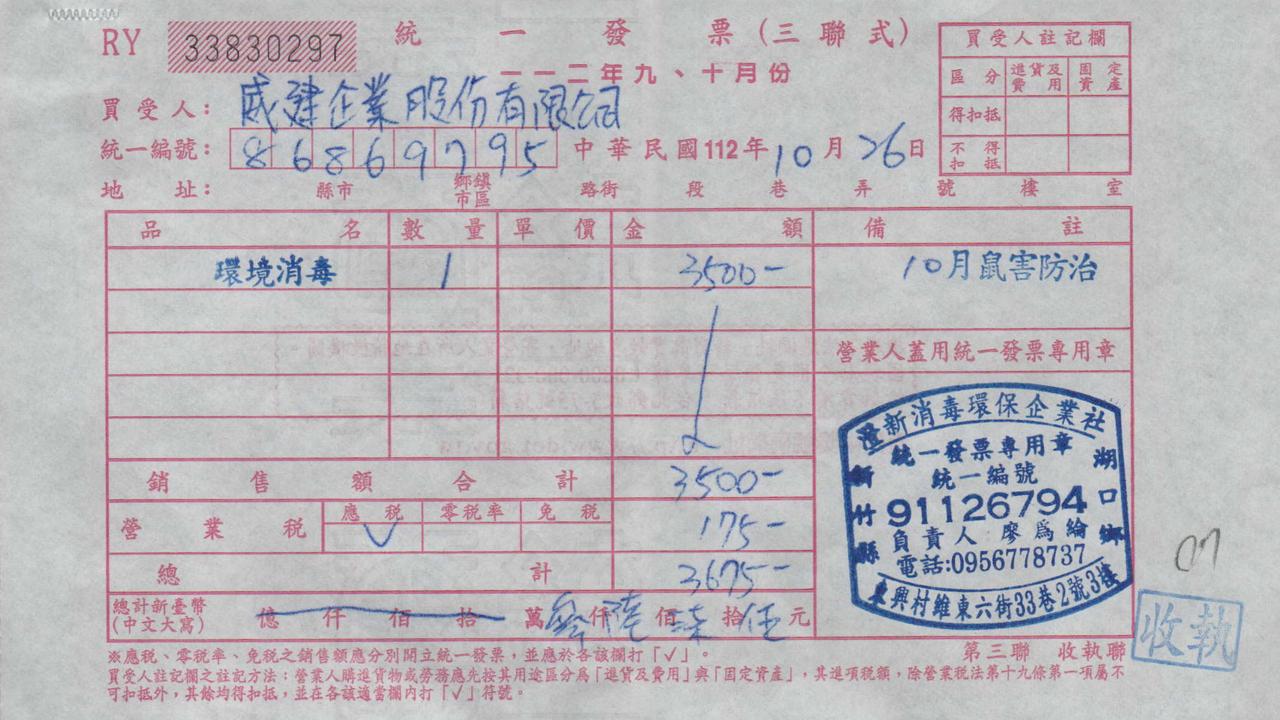 RY 33830297 統一發票(三聯式)
一一二年九、十月份
買受人註記欄
區分 進貨及費用 固定資產
得扣抵
不得扣抵
買受人: 威建企業股份有限公司
統一編號: 86869795 中華民國112年10月26日
地址: 縣市 鄉鎮市區 路街 段 巷 弄 號 樓 室
品名 數量 單價 金額 備註
環境消毒 1 3500- 10月鼠害防治
營業人蓋用統一發票專用章
銷售額合計 3500-
營業稅 應稅 零稅率 免稅 175-
V
總計 3675-
總計新臺幣(中文大寫) 億 仟 佰 拾 萬 參仟 陸佰 柒拾 伍元
澄新消毒環保企業社
統一發票專用章
統一編號
91126794
負責人 廖為綸
電話:0956778737
新竹縣 湖口鄉
東興村維東六街33巷2號3樓
07
收執
第三聯 收執聯
※應稅、零稅率、免稅之銷售額應分別開立統一發票,並應於各該欄打「✓」。
買受人註記欄之註記方法:營業人購進貨物或勞務應先按其用途區分為「進貨及費用」與「固定資產」,其進項稅額,除營業稅法第十九條第一項屬不
可扣抵外,其餘均得扣抵,並在各該適當欄內打「✓」符號。